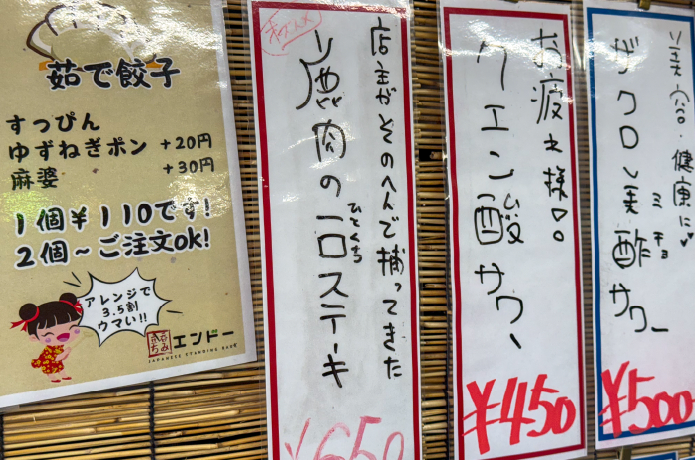 茹で餃子
すっぴん
ゆずねぎポン +20円
麻婆 +30円
1個¥110です!
2個～ご注文ok!
アレンジで
3.5割
ウマい!!
エンドー
JAPANESE STANDING BAR
オススメ
店主がそのへんで捕ってきた
鹿肉の一口ステーキ
ひとくち
¥650
お疲れ様。。
クエン酸サワー
¥450
美容・健康に♥
ザクロ美酢サワー
ミチョ
¥500